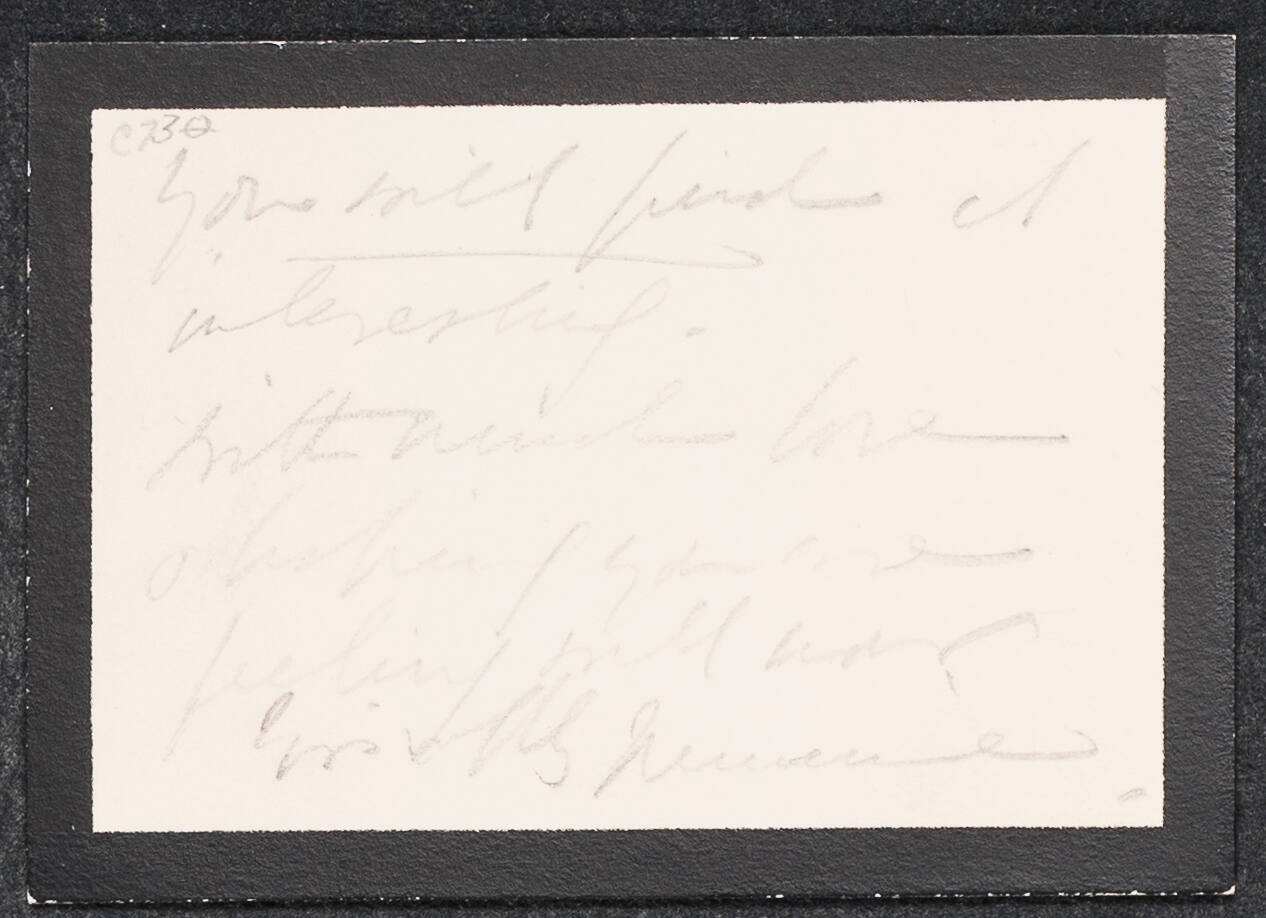 C73
You will find it
interesting.
With much love
& hoping you are
feeling well now,